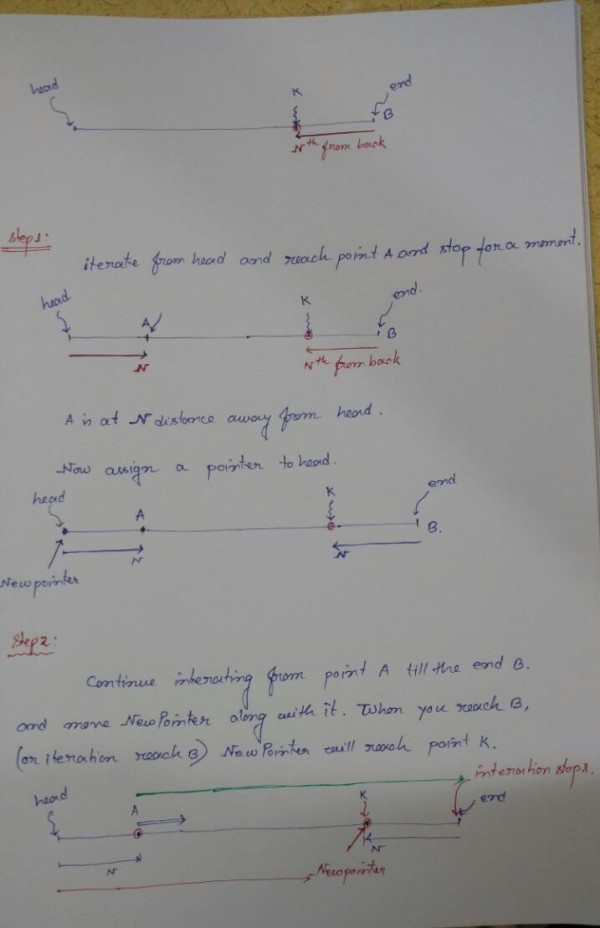 head
K
end
B
Nth from back
Step1:
iterate from head and reach point A and stop for a moment.
head
A
K
end.
B
N
Nth from back
A is at N distance away from head.
Now assign a pointer to head.
head
A
K
end
B.
N
N
Newpointer
Step2:
Continue interating from point A till the end B.
and move NewPointer along with it. When you reach B,
(or iteration reach B) NewPointer will reach point K.
interation stops.
head
A
K
end
K
N
N
Newpointer